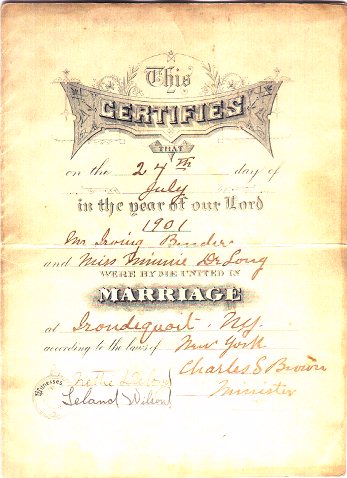 This
CERTIFIES
THAT
on the 27th day of
July
in the year of our Lord
1901
Mr Irving Bender
and Miss Minnie DeLong
WERE BY ME UNITED IN
MARRIAGE
at Irondequoit. NY.
according to the laws of New York
Charles S Brown
Minister
Witnesses
Leland Wilson